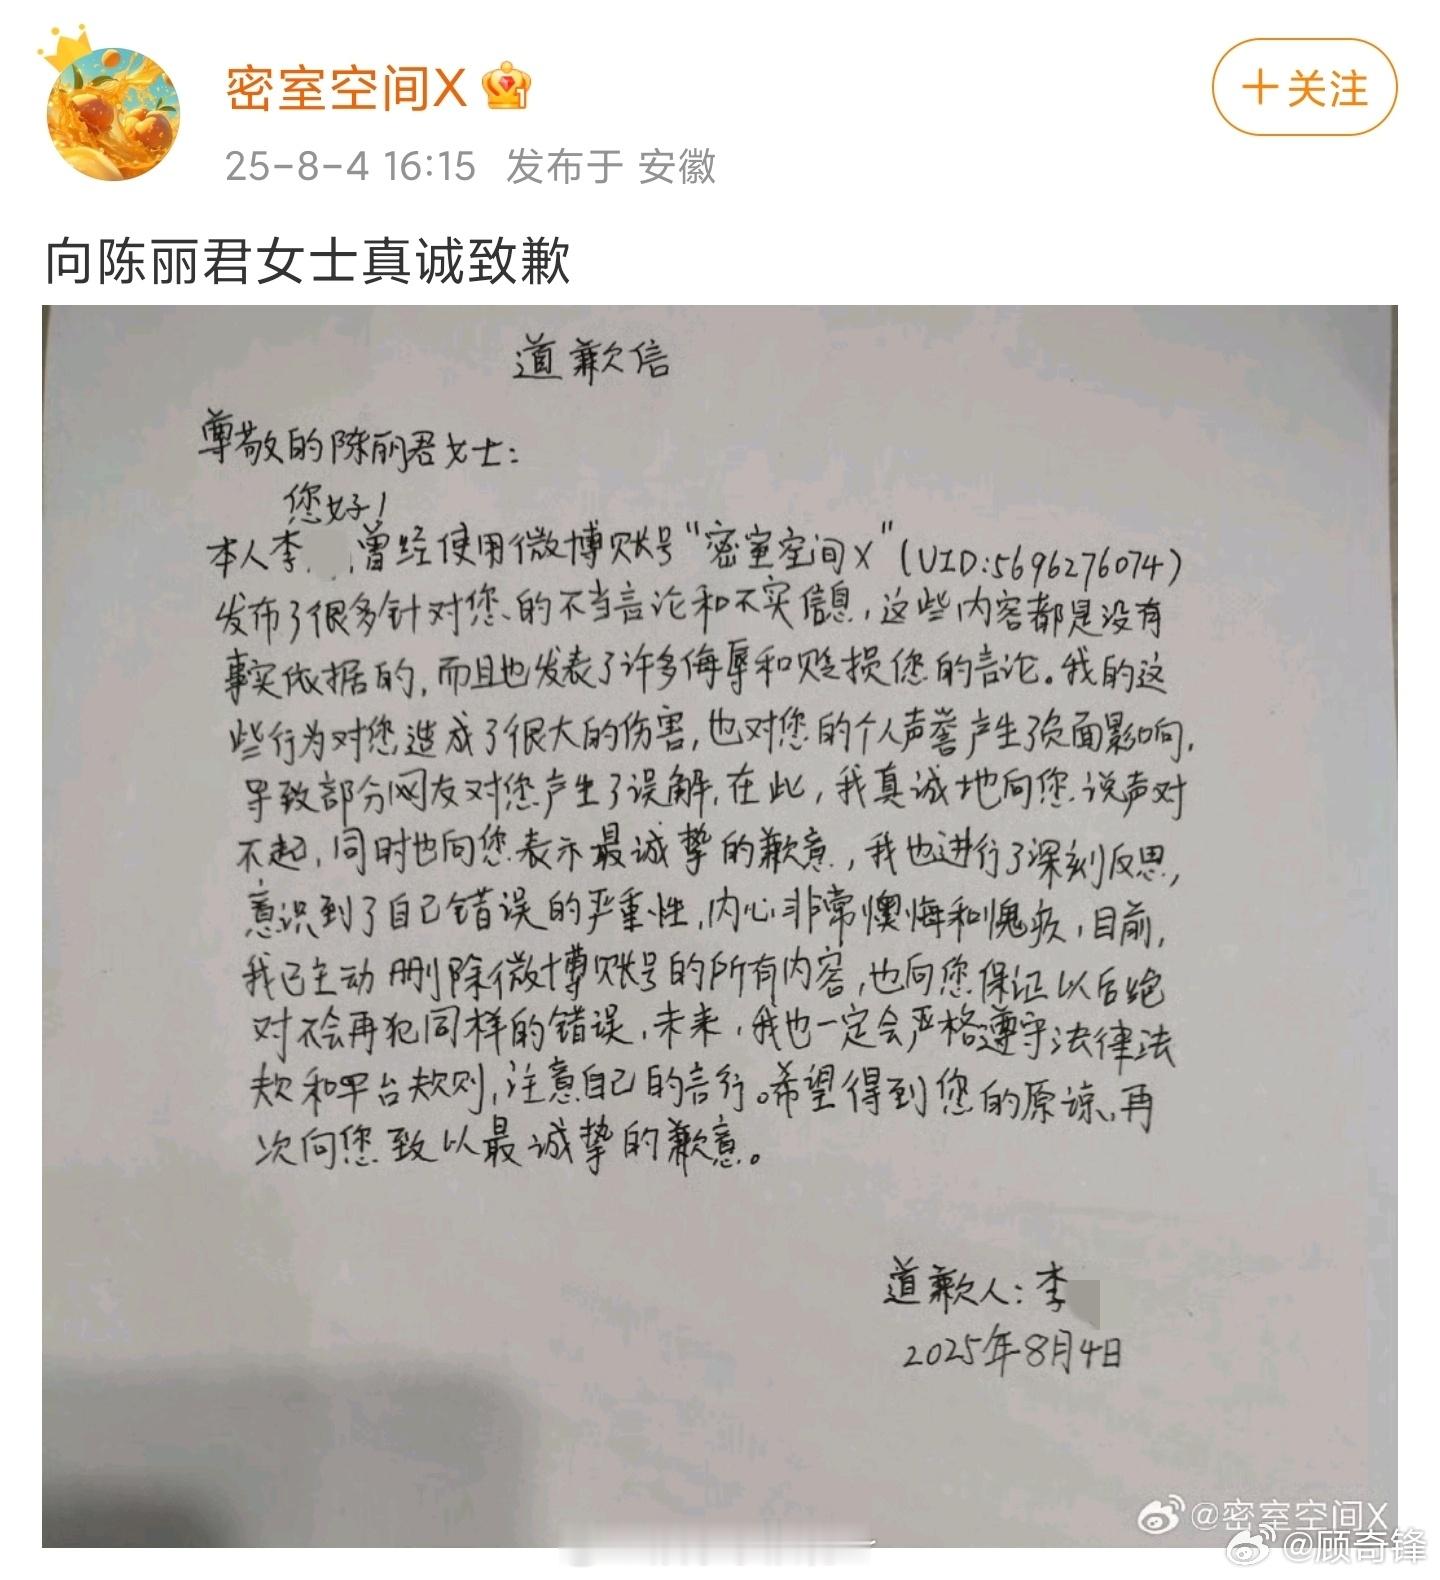 密室空间X
+关注
25-8-4 16:15 发布于 安徽
向陈丽君女士真诚致歉
道歉信
尊敬的陈丽君女士：
您好！
本人李 ,曾经使用微博账号“密室空间X”(UID:5696276074)
发布了很多针对您的不当言论和不实信息，这些内容都是没有
事实依据的，而且也发表了许多侮辱和贬损您的言论。我的这
些行为对您造成了很大的伤害，也对您的个人声誉产生了负面影响，
导致部分网友对您产生了误解，在此，我真诚地向您说声对
不起，同时也向您表示最诚挚的歉意，我也进行了深刻反思，
意识到了自己错误的严重性，内心非常懊悔和愧疚，目前，
我已主动删除微博账号的所有内容，也向您保证以后绝
对不会再犯同样的错误，未来，我也一定会严格遵守法律法
规和平台规则，注意自己的言行。希望得到您的原谅，再
次向您致以最诚挚的歉意。
道歉人：李
2025年8月4日
@密室空间X
@顾奇锋